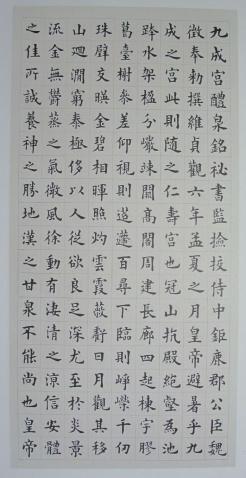 九成宮醴泉銘祕書監撿挍侍中鉅鹿郡公臣魏
徵奉勅撰維貞觀六年孟夏之月皇帝避暑乎九
成之宮此則隨之仁壽宮也冠山抗殿絕壑為池
跨水架楹分巖竦闕高閣周建長廊四起棟宇膠
葛臺榭參差仰視則迢遰百尋下臨則崢嶸千仞
珠璧交暎金碧相暉照灼雲霞蔽虧日月觀其移
山迴澗窮泰極侈以人從欲良足深尤至於炎景
流金無鬱蒸之氣微風徐動有淒清之涼信安體
之佳所誠養神之勝地漢之甘泉不能尚也皇帝